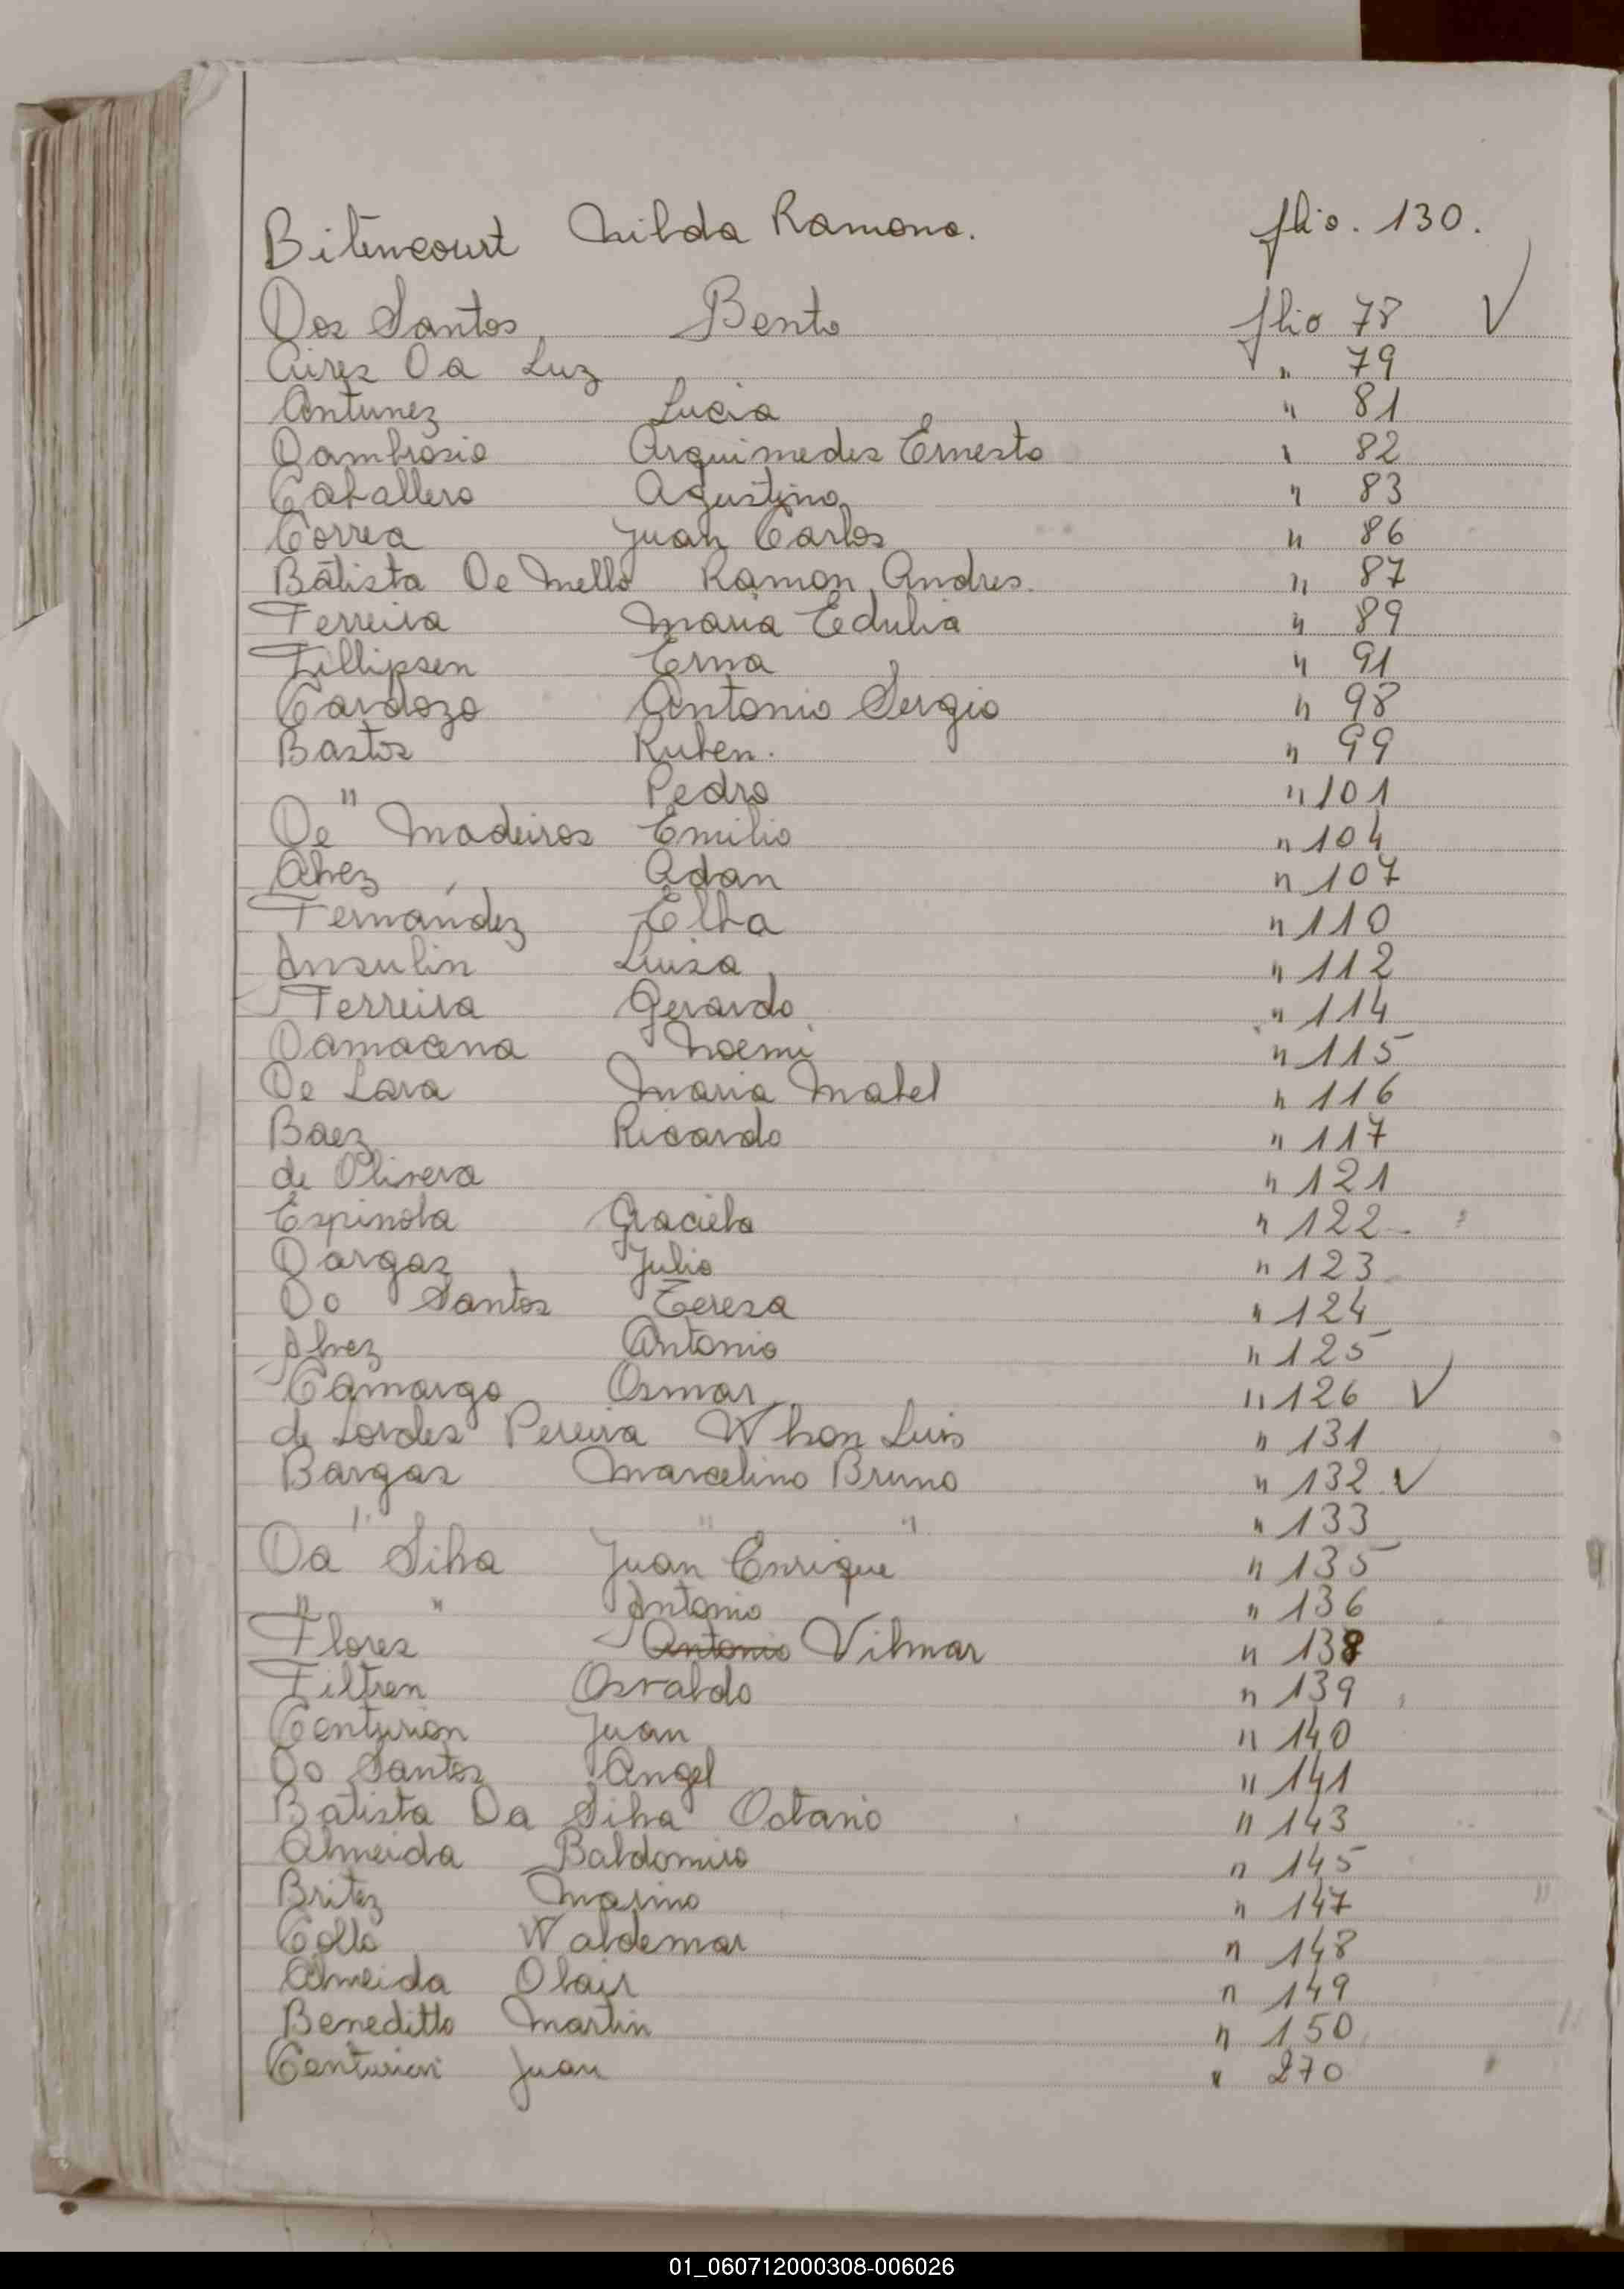 Bitencourt Nilda Ramona. flio. 130.
Dos Santos Bento flio 78 ✓
Aires Da Luz " 79
Antunez Lucia " 81
Dambrosio Arquimedes Ernesto " 82
Caballero Agustina " 83
Correa Juan Carlos " 86
Batista De Mello Ramon Andres. " 87
Ferreira Maria Edulia " 89
Fillipsen Erna " 91
Cardozo Antonio Sergio " 98
Bastos Ruben. " 99
" Pedro " 101
De Madeiros Emilio " 104
Alvez Adan " 107
Fernández Elba " 110
Ansulin Luisa " 112
Ferreira Gerardo " 114
Damacena Noemi " 115
De Lara Maria Mabel " 116
Baez Ricardo " 117
de Olivera " 121
Espinola Graciela " 122
Dargas Julio " 123
Do Santos Tereza " 124
Alvez Antonio " 125
Camargo Osmar " 126 ✓
de Lordes Pereira Wlson Luis " 131
Bargas Marcelino Bruno " 132 ✓
" " " " 133
Da Silva Juan Enrique " 135
" " Antonio " 136
Flores Antonio Vilmar " 138
Filtren Osvaldo " 139
Centurion Juan " 140
Do Santos Angel " 141
Batista Da Silva Octavio " 143
Almeida Baldomiro " 145
Britez Marino " 147
Collo Waldemar " 148
Almeida Olair " 149
Beneditto Martin " 150
Centurion Juan " 270
01_060712000308-006026